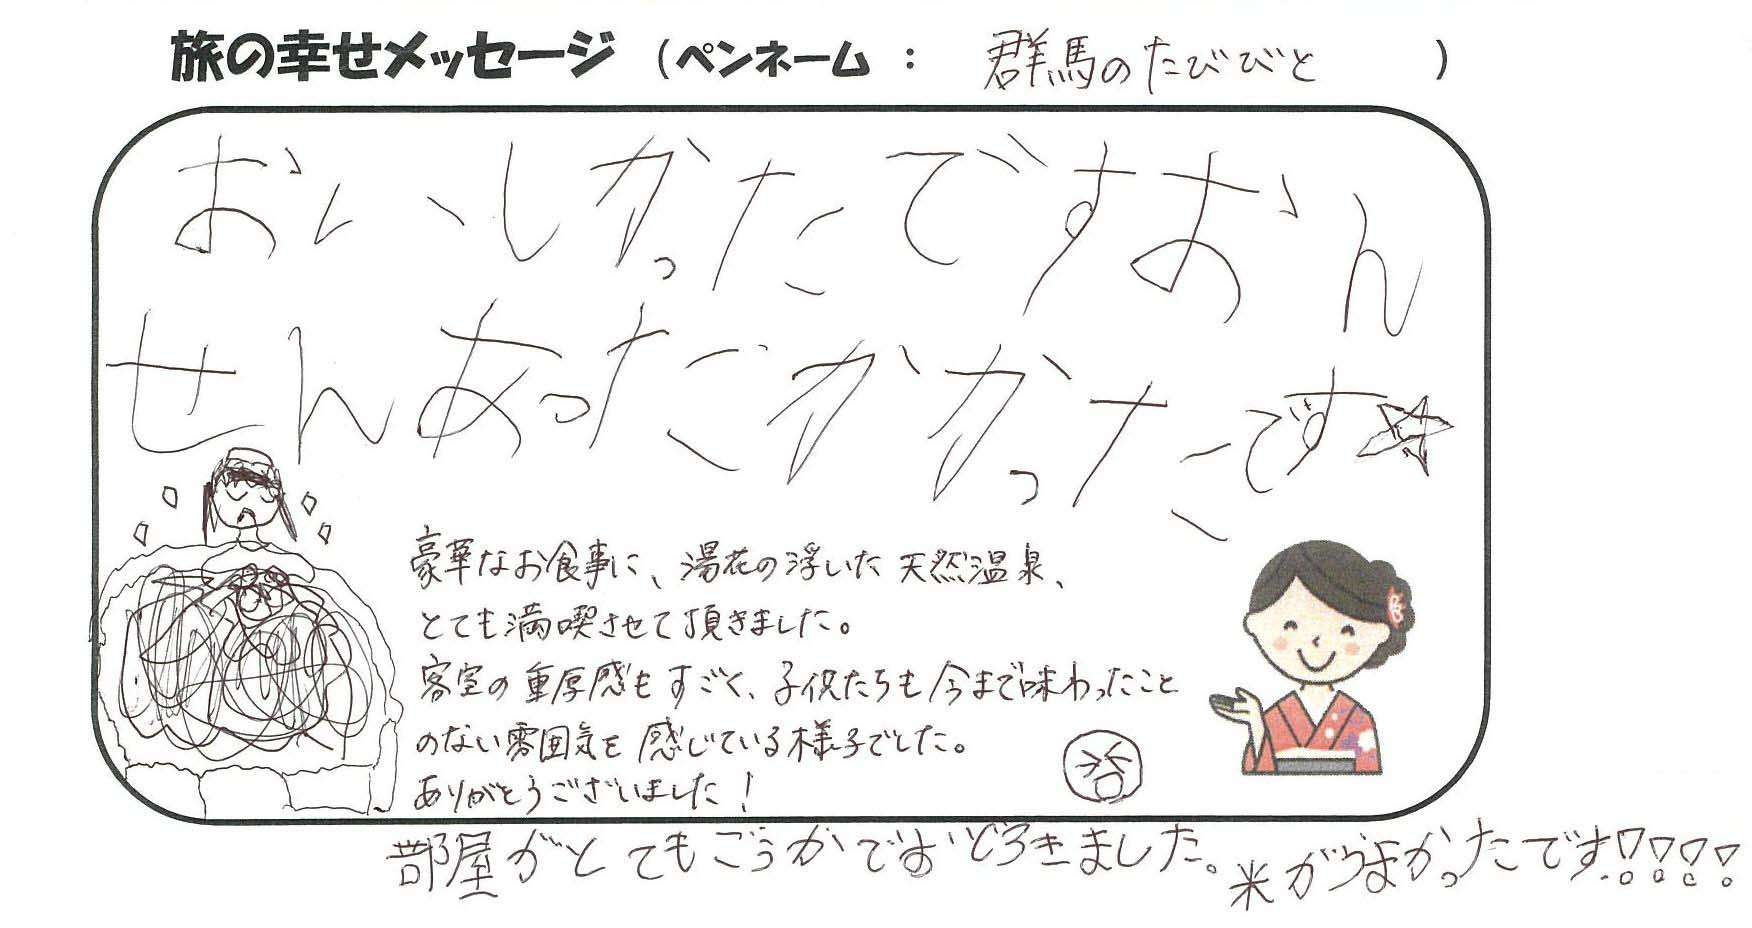 旅の幸せメッセージ (ペンネーム : 群馬のたびびと )
おいしかったですおん
せんあったかかったです☆
豪華なお食事に、湯花の浮いた天然温泉、
とても満喫させて頂きました。
客室の重厚感もすごく、子供たちも今まで味わったこと
のない雰囲気を感じている様子でした。
ありがとうございました!
部屋がとてもごうかでおどろきました。米がうまかったです!!!!